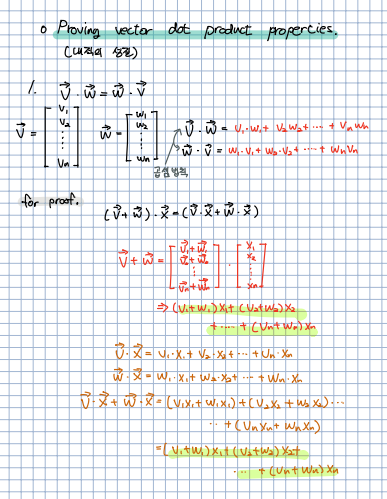 o Proving vector dot product properties.
(내적의 성질)
1. V⃗ · W⃗ = W⃗ · V⃗
V⃗ = [V₁ V₂ ⋮ Vn] W⃗ = [W₁ W₂ ⋮ Wn] V⃗ · W⃗ = V₁·W₁ + V₂W₂ + ···· + Vn Wn
W⃗ · V⃗ = W₁·V₁ + W₂·V₂ + ···· + Wn Vn
곱셈 법칙
for proof.
(V⃗ + W⃗) · X⃗ = (V⃗ · X⃗ + W⃗ · X⃗)
V⃗ + W⃗ = [V⃗₁ + W⃗₁ V⃗₂ + W⃗₂ ⋮ V⃗n + W⃗n] · [X₁ X₂ ⋮ Xn]
⇒ (V₁ + W₁)X₁ + (V₂ + W₂)X₂
+ ···· + (Vn + Wn)Xn
V⃗ · X⃗ = V₁·X₁ + V₂·X₂ + ··· + Vn·Xn
W⃗ · X⃗ = W₁·X₁ + W₂·X₂ + ··· + Wn·Xn
V⃗ · X⃗ + W⃗ · X⃗ = (V₁X₁ + W₁X₁) + (V₂X₂ + W₂X₂) ···
·· + (VnXn + WnXn)
= (V₁ + W₁)X₁ + (V₂ + W₂)X₂ +
··· + (Vn + Wn)Xn